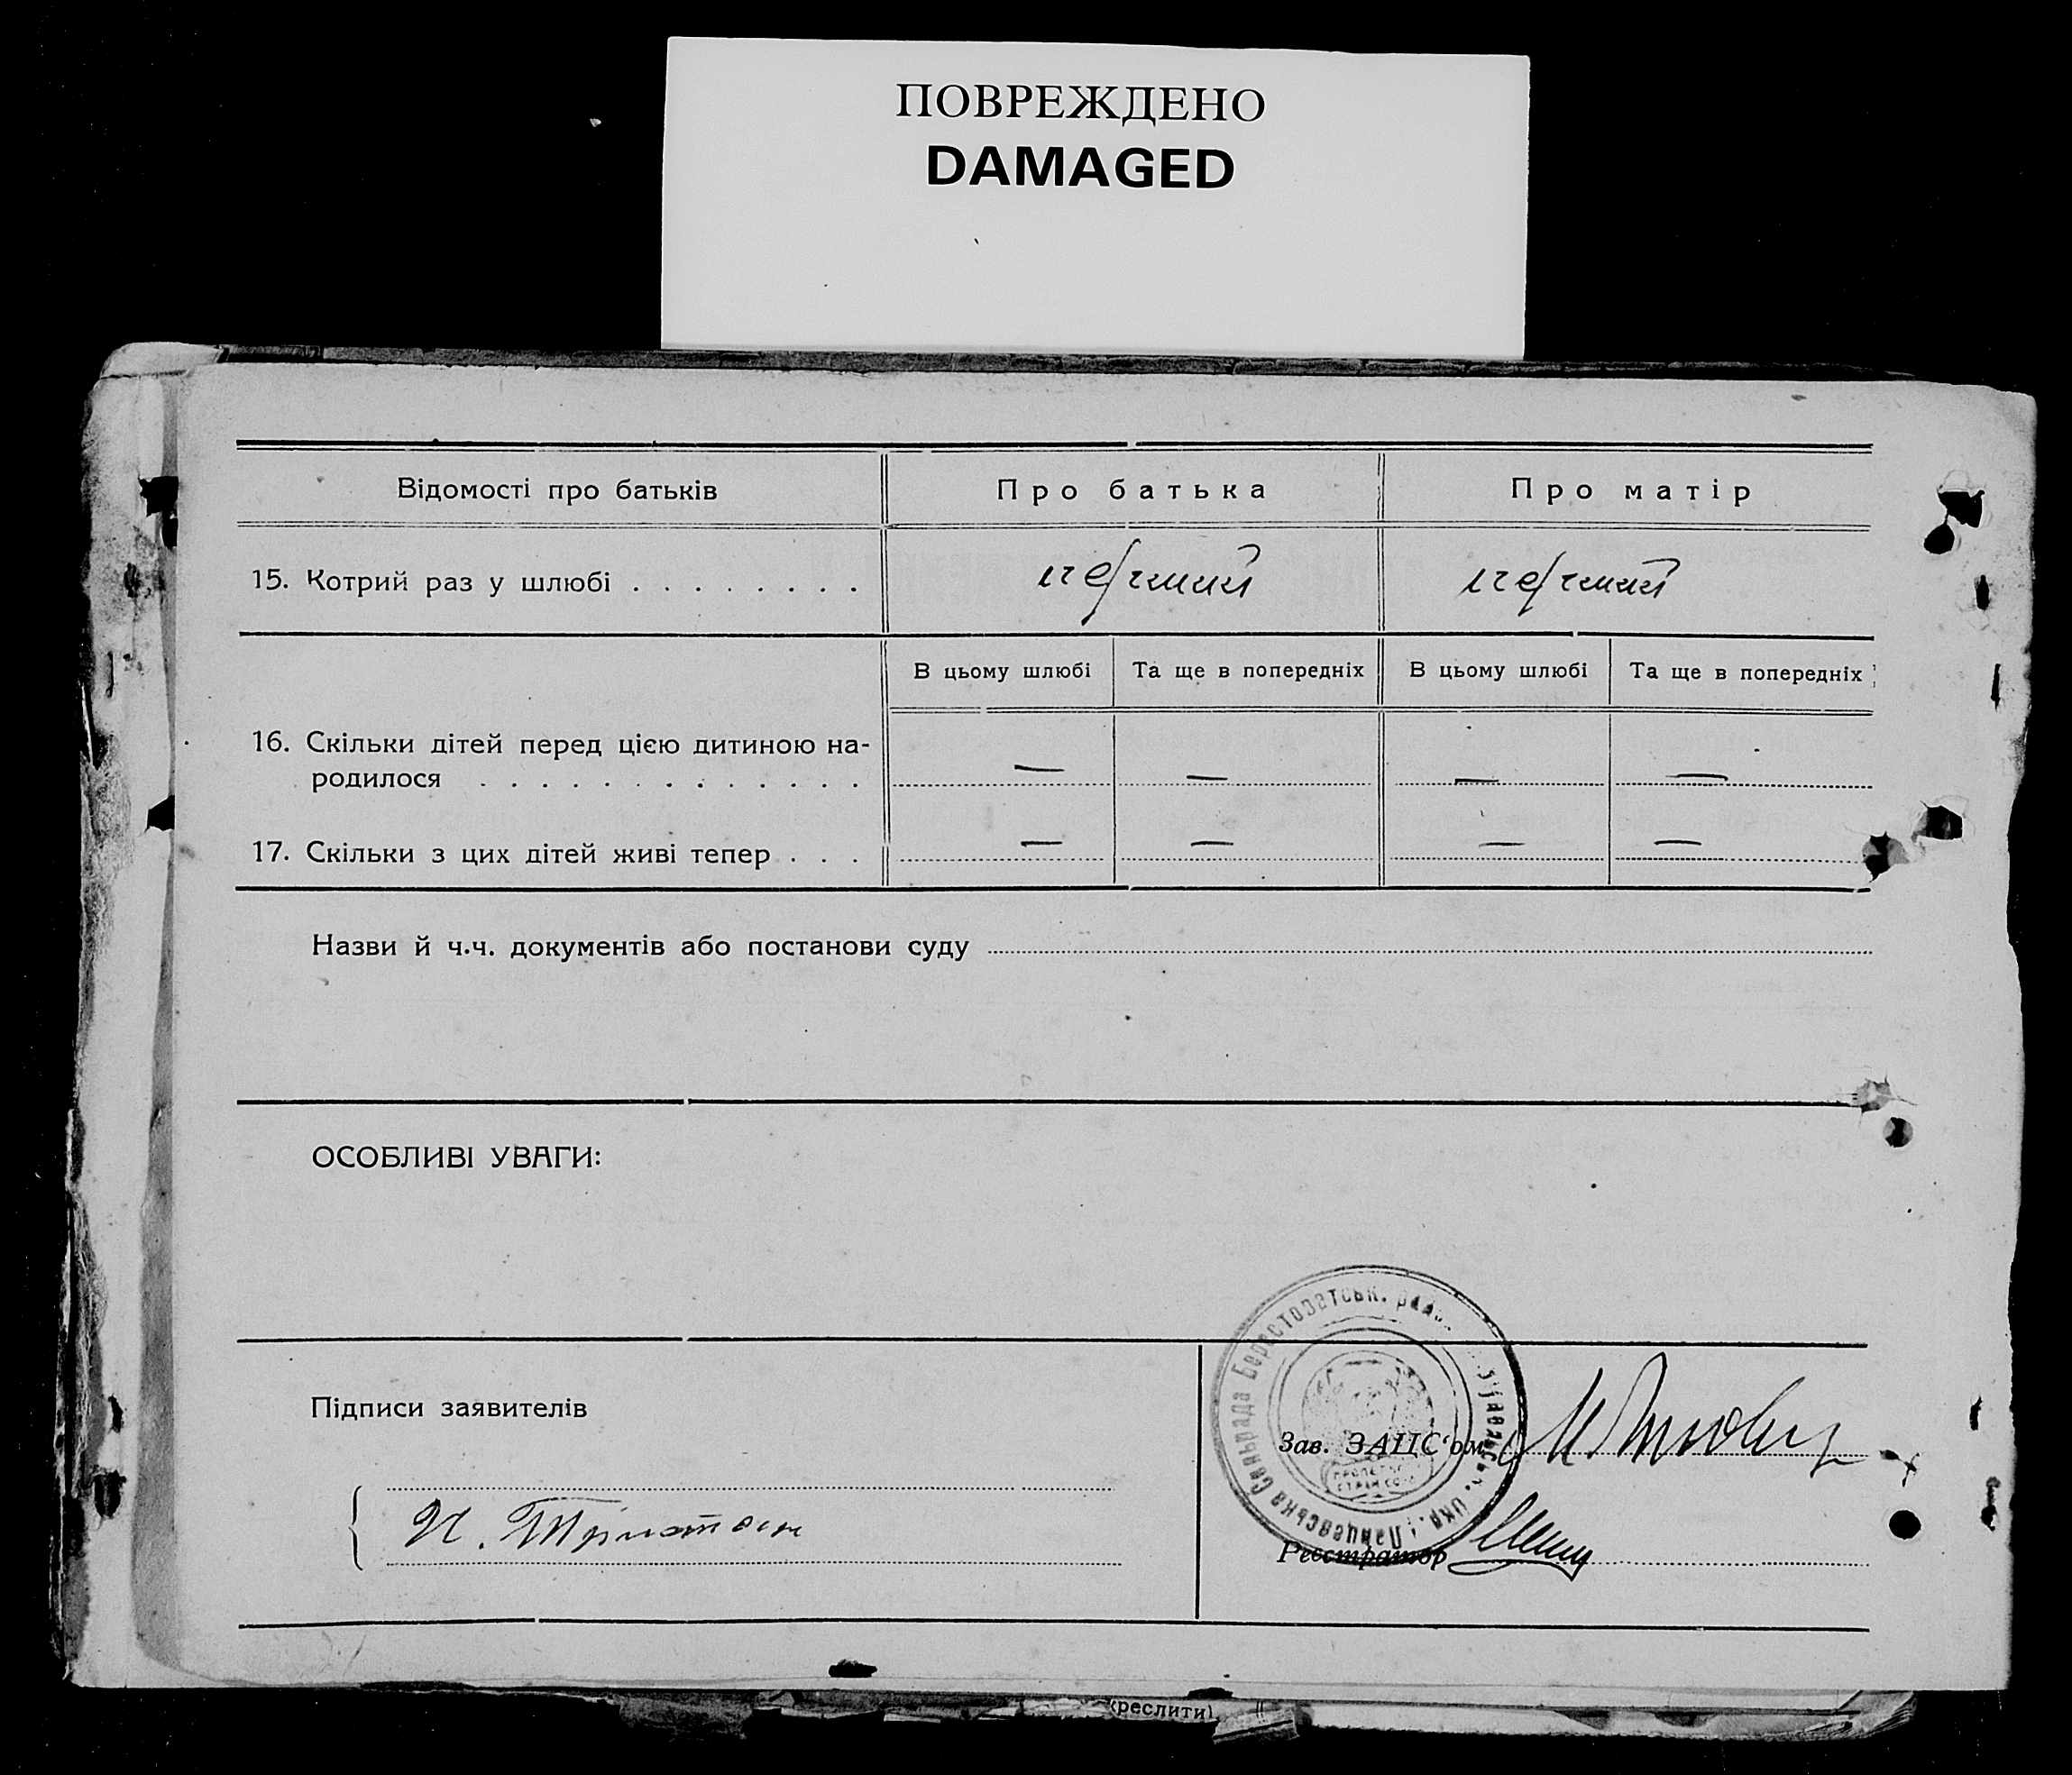 ПОВРЕЖДЕНО
DAMAGED
Відомості про батьків
Про батька
Про матір
15. Котрий раз у шлюбі . . . . . . . .
перший
перший
В цьому шлюбі
Та ще в попередніх
В цьому шлюбі
Та ще в попередніх
16. Скільки дітей перед цією дитиною на-
родилося . . . . . . . . . . . . .
—
—
—
—
17. Скільки з цих дітей живі тепер . . .
—
—
—
—
Назви й ч.ч. документів або постанови суду
ОСОБЛИВІ УВАГИ:
Підписи заявителів
Зав. ЗАЦС'ом
Реєстратор
Сельрада Берестоватськ.
креслити)